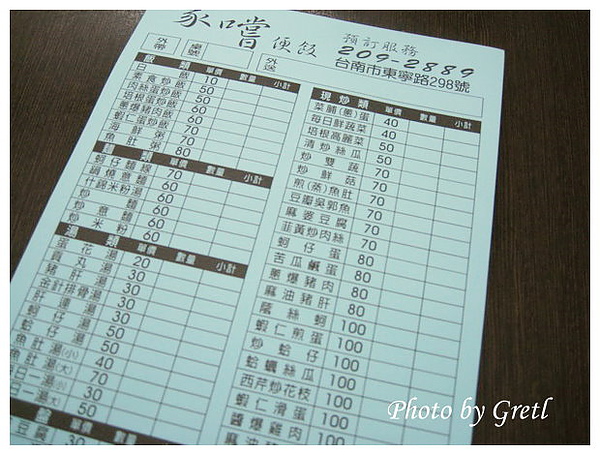 家口嚐 便飯
預訂服務
209-2889
台南市東寧路298號
外帶
桌號
外送
飯類 單價 數量 小計
白飯 10
素食炒飯 50
肉絲蛋炒飯 50
培根蛋炒飯 50
蔥爆豬肉飯 60
蝦仁蛋炒飯 60
海鮮粥 70
魚肚粥 80
麵類 單價 數量 小計
蚵仔麵線 70
鍋燒意麵 60
什錦米粉湯 60
炒麵 60
炒意麵 60
炒米粉 60
湯類 單價 數量 小計
蛋花湯 20
貢丸湯 30
豬肝湯 30
金針排骨湯 30
肝連湯 30
蚵仔湯 50
蛤仔湯 50
魚肚湯(小) 40
魚肚湯(大) 70
日一湯(小) 30
日一湯(大) 50
豆腐 30
現炒類 單價 數量 小計
菜脯(蔥)蛋 40
每日鮮蔬菜 40
培根高麗菜 50
清炒絲瓜 50
炒雙蔬 70
炒鮮菇 70
煎(蒸)魚肚 70
豆瓣吳郭魚 70
麻婆豆腐 70
韮黃炒肉絲 70
蚵仔蛋 80
苦瓜鹹蛋 80
蔥爆豬肉 80
麻油豬肝 80
蔭絲蚵 100
蝦仁煎蛋 100
炒蛤仔 100
蛤蠣絲瓜 100
西芹炒花枝 100
蝦仁滑蛋 100
醬爆雞肉 100
麻油雞 100
Photo by Gretl